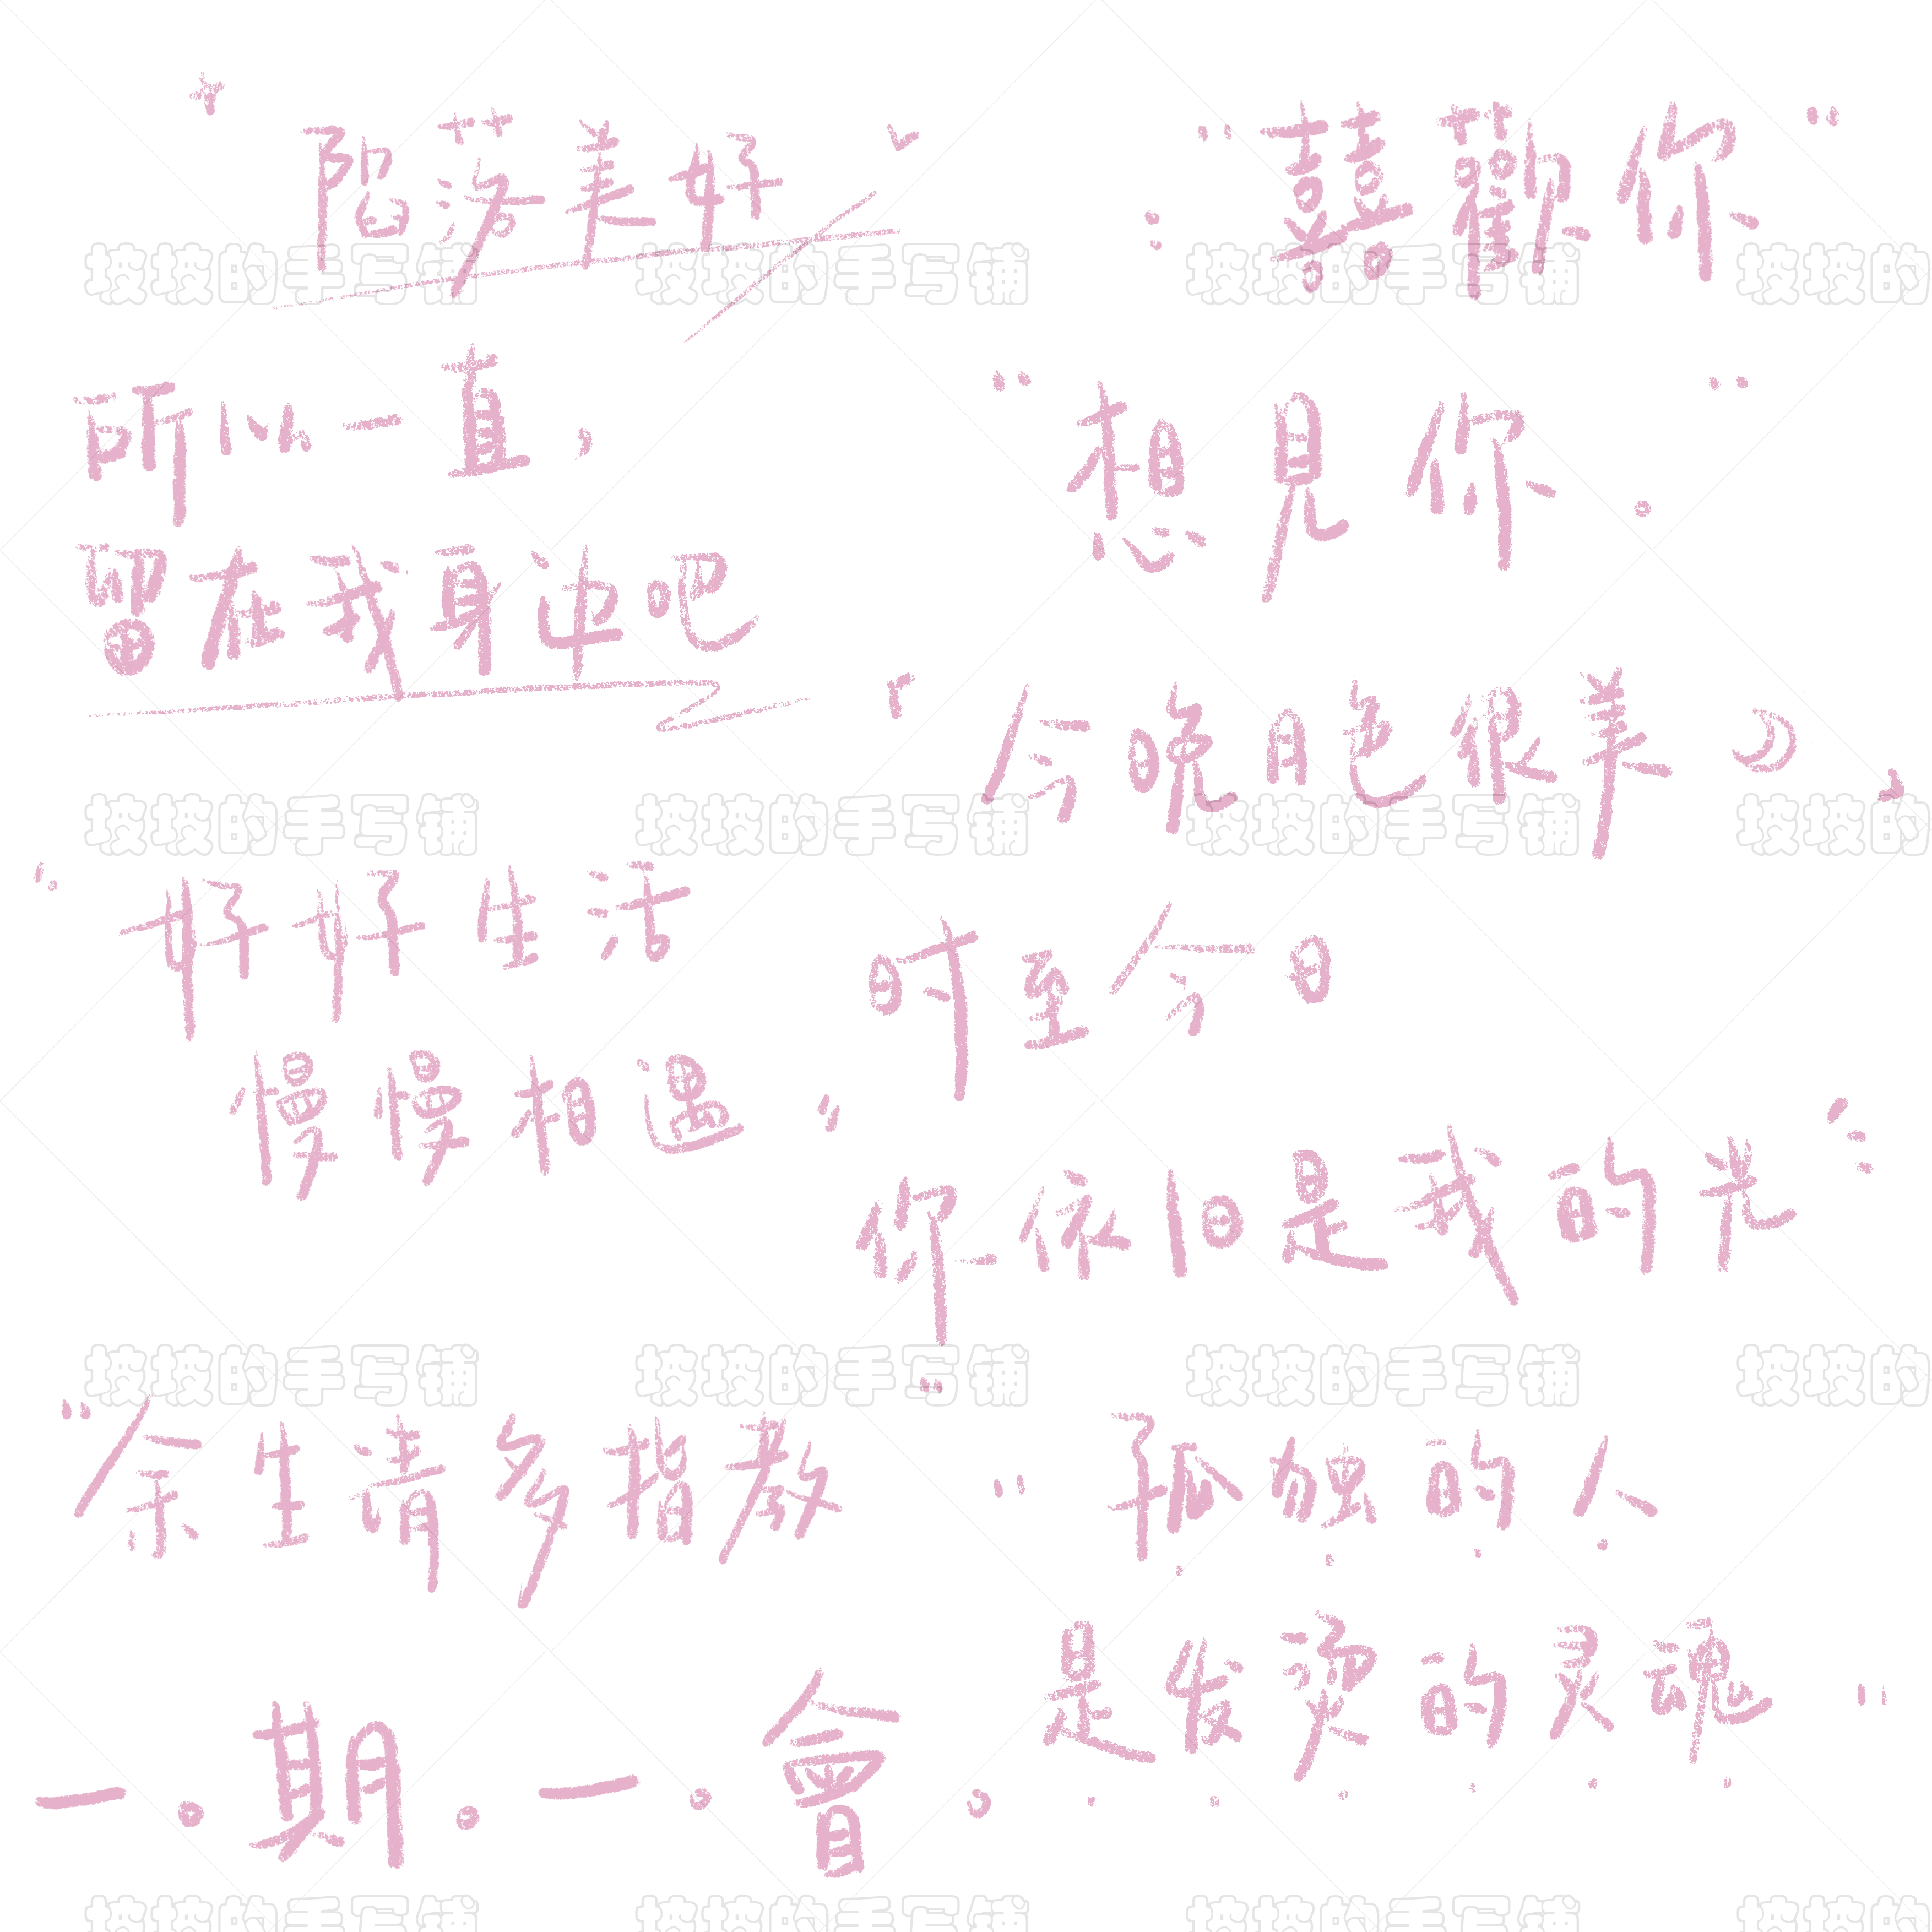 陷落美好
“囍歡你”
所以一直，
留在我身边吧
“想見你”。
「今晚月色很美」
“好好生活
慢慢相遇”
时至今日
你依旧是我的光
“余生请多指教”
“孤独的人
是发烫的灵魂”
一。期。一。會。
坡坡的手写铺 坡坡的手写铺 坡坡的手写铺 坡坡的
坡坡的手写铺 坡坡的手写铺 坡坡的手写铺 坡坡的
坡坡的手写铺 坡坡的手写铺 坡坡的手写铺 坡坡的
坡坡的手写铺 坡坡的手写铺 坡坡的手写铺 坡坡的